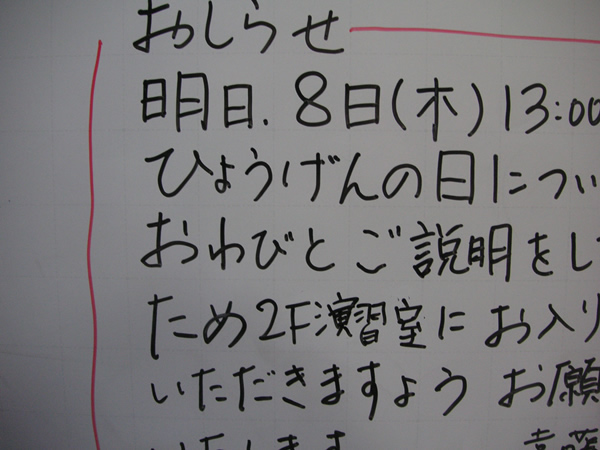 おしらせ
明日.8日(木)13:00
ひょうげんの日につい
おわびとご説明をし
ため2F演習室にお入り
いただきますょうお願
いたします